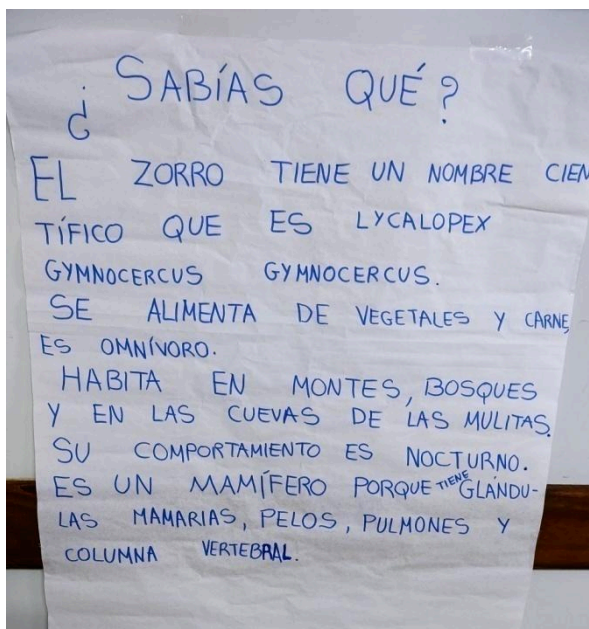 ¿SABÍAS QUÉ?
EL ZORRO TIENE UN NOMBRE CIEN
TÍFICO QUE ES LYCALOPEX
GYMNOCERCUS GYMNOCERCUS.
SE ALIMENTA DE VEGETALES Y CARNE,
ES OMNÍVORO.
HABITA EN MONTES, BOSQUES
Y EN LAS CUEVAS DE LAS MULITAS.
SU COMPORTAMIENTO ES NOCTURNO.
ES UN MAMÍFERO PORQUE TIENE GLÁNDU-
LAS MAMARIAS, PELOS, PULMONES Y
COLUMNA VERTEBRAL.